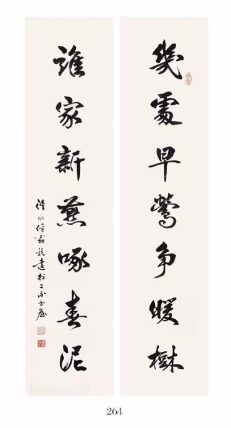 幾處早鶯争暖樹
誰家新燕啄春泥
264